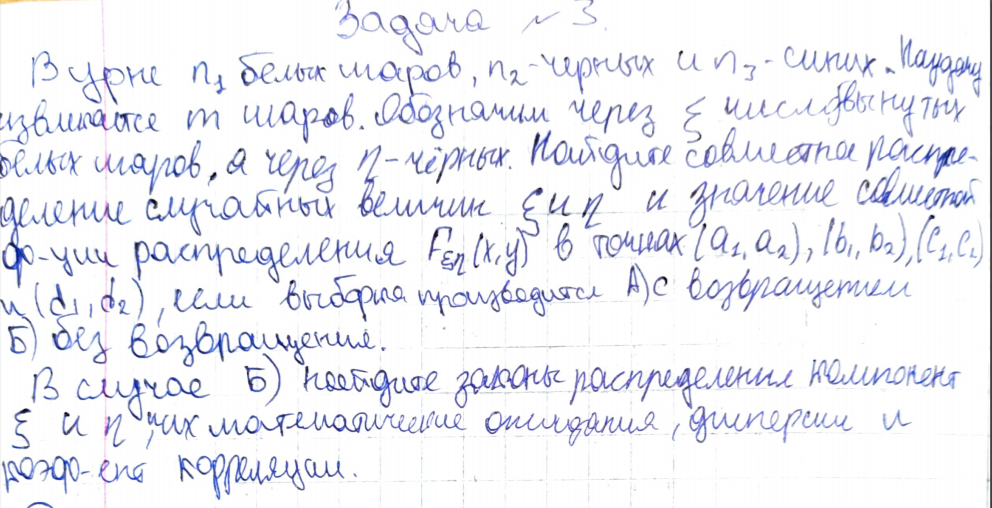 Задача № 3.
В урне n₁ белых шаров, n₂-черных и n₃-синих. Наудачу
извлекается m шаров. Обозначим через ξ число вынутых
белых шаров, а через η-чёрных. Найдите совместное распре-
деление случайных величин ξ и η и значение совместной
ф-ции распределения Fξη(x,y) в точках (a₁,a₂),(b₁,b₂),(c₁,c₂)
и (d₁,d₂), если выборка производится А)с возвращением
Б) без возвращения.
В случае Б) найдите законы распределения компонент
ξ и η, их математические ожидания, дисперсии и
коэф-ент корреляции.